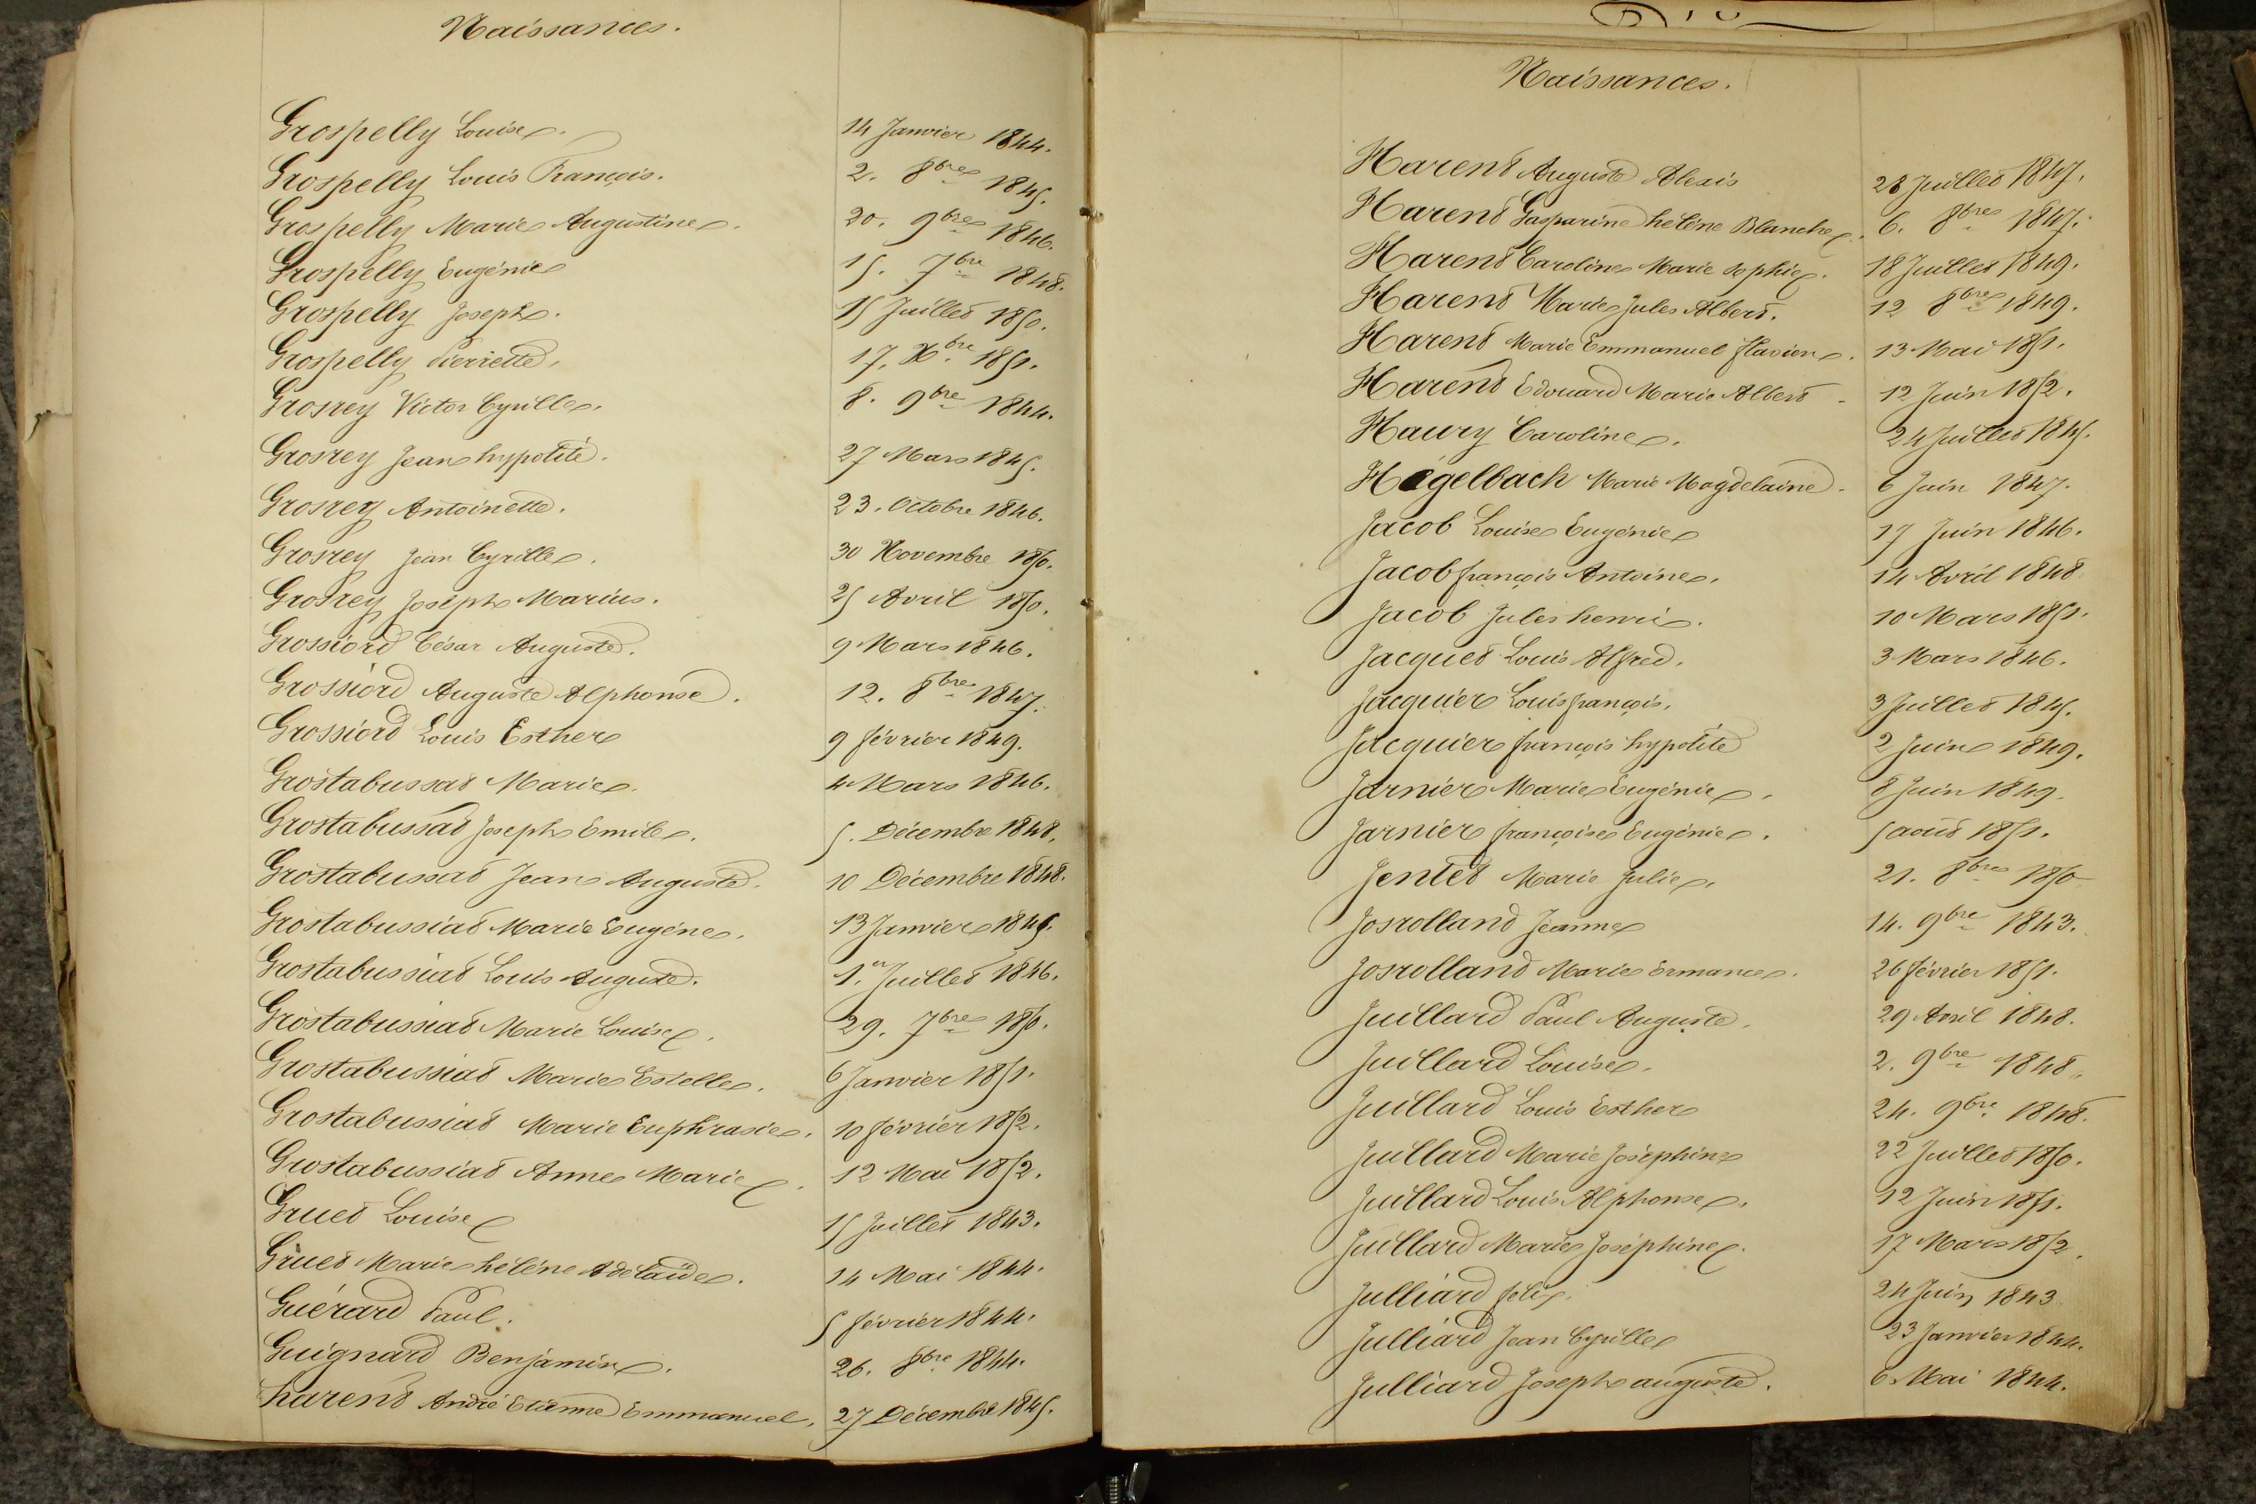 Naissances.
Grospelly Louise. 14 Janvier 1844.
Grospelly Louis François. 2. 8bre 1845.
Grospelly Marie Augustine. 20. 9bre 1846.
Grospelly Eugénie 15. 7bre 1848.
Grospelly Joseph. 15 Juillet 1850.
Grospelly Pierrette. 17. Xbre 1851.
Grosrey Victor Cyrille. 8. 9bre 1844.
Grosrey Jean hypolite. 27 Mars 1845.
Grosrey Antoinette. 23. Octobre 1846.
Grosrey Jean Cyrille. 30 Novembre 1850.
Grosrey Joseph Marius. 25 Avril 1850.
Grossiord César Auguste. 9 Mars 1846.
Grossiord Auguste Alphonse. 12. 8bre 1847.
Grossiord Louis Esther 9 février 1849.
Grostabussat Marie. 4 Mars 1846.
Grostabussat Joseph Emile. 5. Décembre 1848.
Grostabussat Jean Auguste. 10 Décembre 1848.
Grostabussiat Marie Eugéne. 13 Janvier 1845.
Grostabussiat Louis Auguste. 1.er Juillet 1846.
Grostabussiat Marie Louise. 29. 7bre 1850.
Grostabussiat Marie Estelle. 6 Janvier 1851.
Grostabussiat Marie Euphrasie. 10 février 1852.
Grostabussiat Anne Marie. 12 Mai 1852.
Gruet Louise 15 Juillet 1843.
Gruet Marie hélène Adélaïde. 14 Mai 1844.
Guérard Paul. 5 février 1844.
Guignard Benjamin. 26. 8bre 1844.
harent André Etienne Emmanuel. 27 Décembre 1845.
Naissances.
Harent Auguste Alexis 28 Juillet 1847.
Harent Gasparine hélène Blanche. 6. 8bre 1847.
Harent Caroline Marie Sophie. 18 Juillet 1849.
Harent Marie Jules Albert. 12 8bre 1849.
Harent Marie Emmanuel flavien. 13 Mai 1851.
Harent Edouard Marie Albert 12 Juin 1852.
Haury Caroline. 24 Juillet 1845.
Hégelbach Marie Magdelaine. 6 Juin 1847.
Jacob Louise Eugénie 17 Juin 1846.
Jacob françois Antoine. 14 Avril 1848
Jacob Jules henri. 10 Mars 1851.
Jacquet Louis Alfred. 3 Mars 1846.
Jacquier Louis françois. 3 Juillet 1845.
Jacquier françois hypolite 2 Juin 1849.
Jarnier Marie Eugénie. 8 Juin 1849.
Jarnier françoise Eugénie. 5 août 1851.
Jentet Marie Julie. 21. 8bre 1850
Josrolland Jeanne 14. 9bre 1843.
Josrolland Marie Ermance. 26 février 1851.
Juillard Paul Auguste. 29 Avril 1848.
Juillard Louise. 2. 9bre 1848.
Juillard Louis Esther 24. 9bre 1848.
Juillard Marie Joséphine 22 Juillet 1850.
Juillard Louis Alphonse. 12 Juin 1851.
Juillard Marie Joséphine. 17 Mars 1852.
Julliard félix. 24 Juin 1843
Julliard Jean Cyrille 23 Janvier 1844.
Julliard Joseph auguste. 6 Mai 1844.